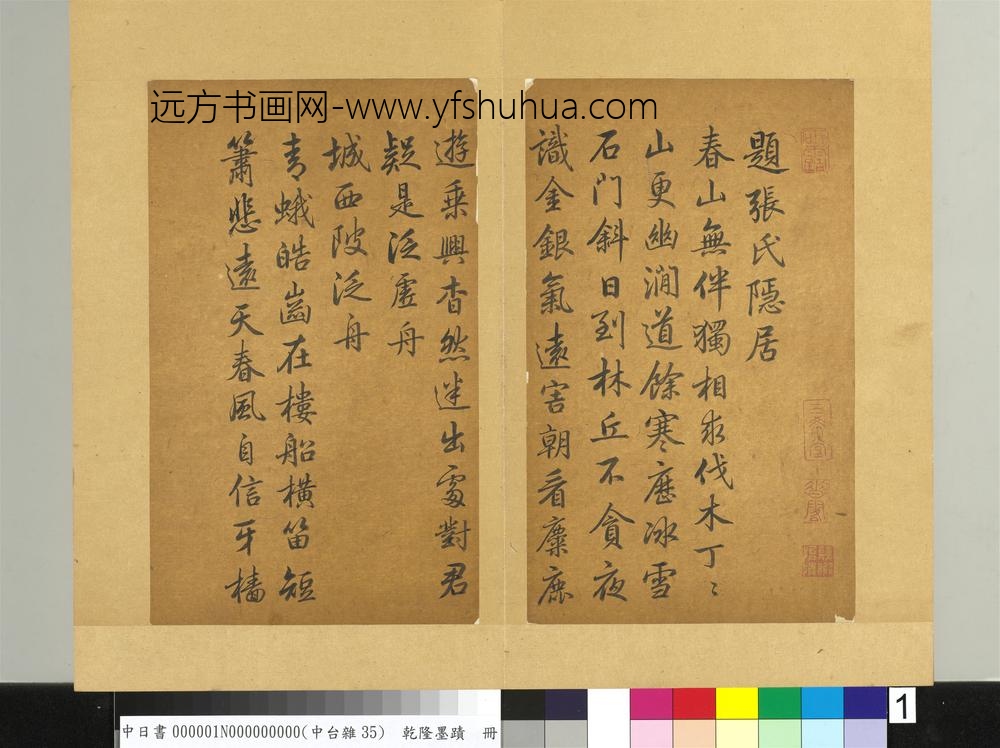 远方书画网-www.yfshuhua.com
題張氏隱居
春山無伴獨相求伐木丁〻
山更幽澗道餘寒歷冰雪
石門斜日到林丘不貪夜
識金銀氣遠害朝看麋鹿
遊乗興杳然迷出處對君
疑是泛虛舟
城西陂泛舟
青蛾皓齒在樓船橫笛短
簫悲遠天春風自信牙檣
1
中日書 000001N000000000(中台雜 35) 乾隆墨蹟 冊